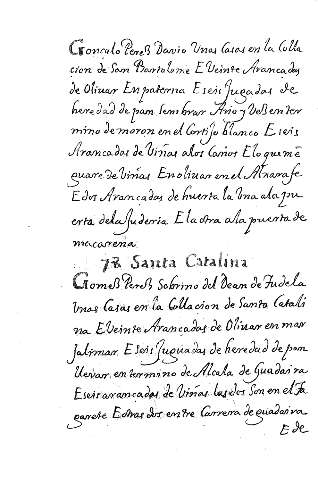 Gonçalo Pereß Davio Unas Casas en la Colla
cion de San Bartolome E Veinte Arançadas
de Olivar En paterna E seis Jugadas de
heredad de pam sembrar Año y Veß en ter
mino de moron en el Cortijo blanco E seis
Arancadas de Viñas a los Caños E lo que me
guare de Viñas En olivar en el Alxarafe
E dos Arancadas de huerta la Una a la pu
erta de la Juderia E la otra a la puerta de
macarena
78 Santa Catalina
Gomeß Pereß Sobrino del Dean de Tudela
Unas Casas en la Collacion de Santa Catali
na E Veinte Arancadas de Olivar en mar
Jalimar E seis Juguadas de heredad de pan
llevar en termino de Alcala de Guadaira
E seis arancadas de Viñas las dos son en el Ta
garete E otras dos entre Carrera de guadaira
E de